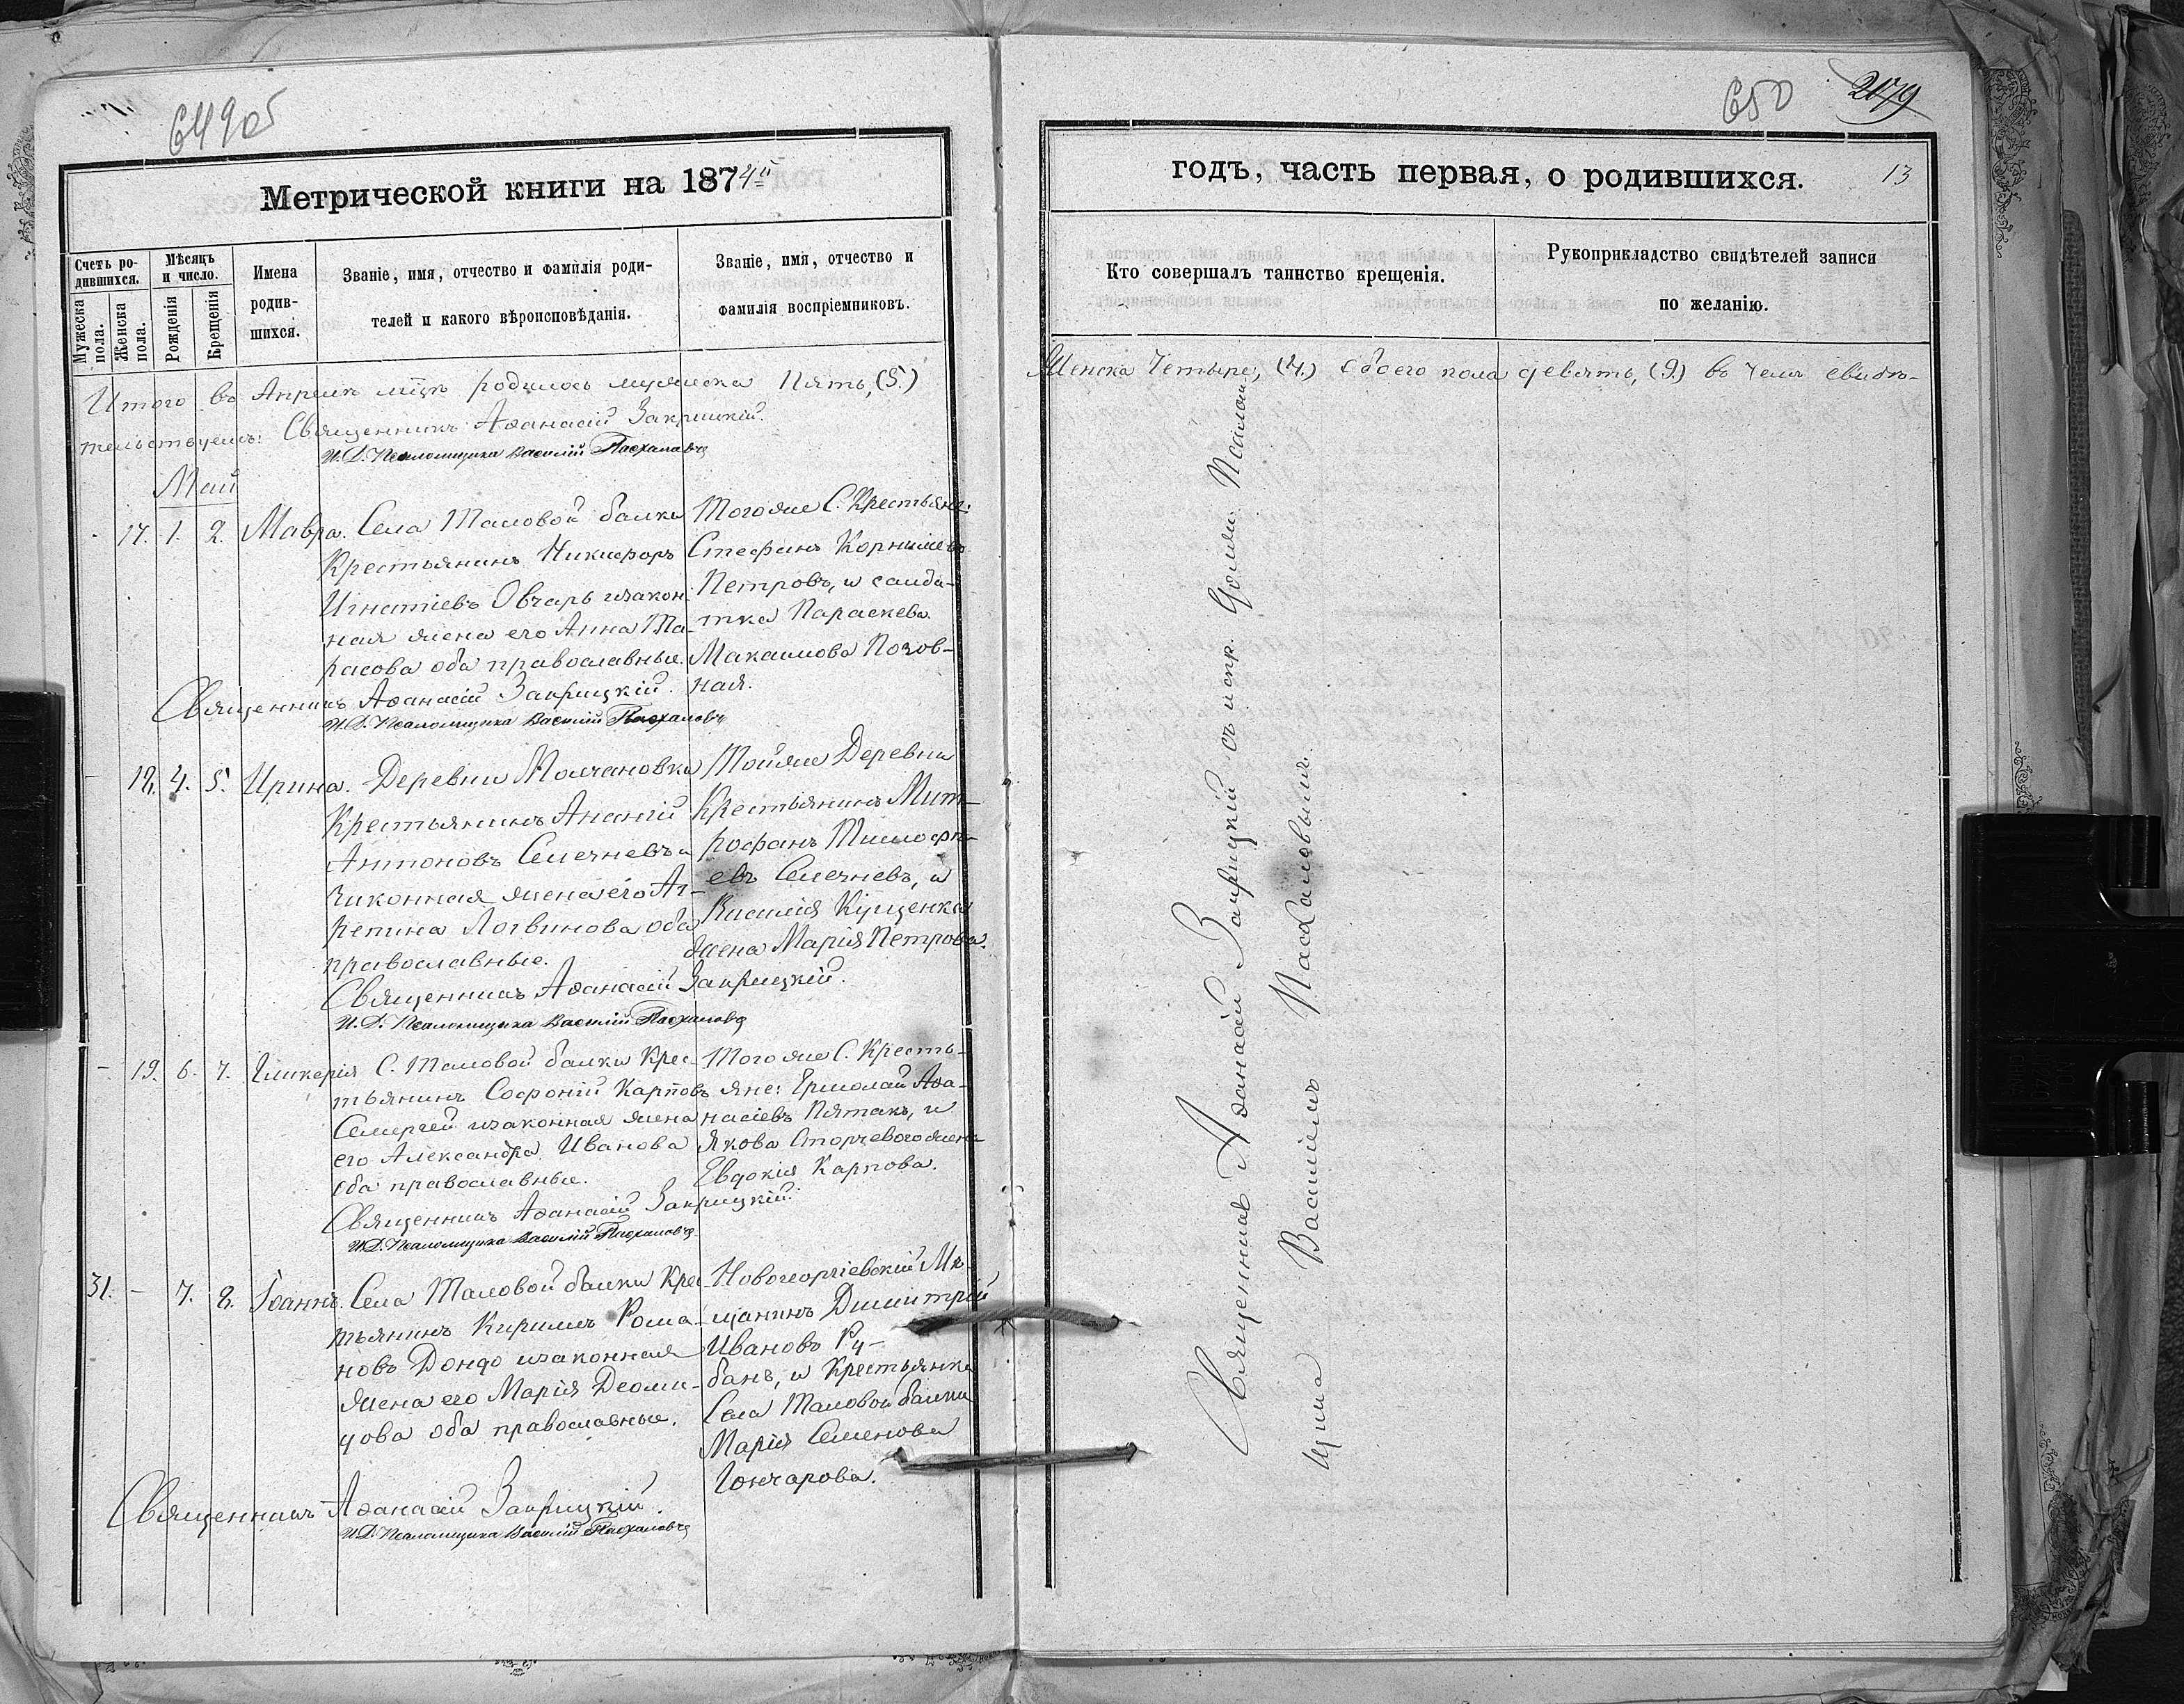 649об
Метрической книги на 1874й
Счетъ ро-
дившихся.
Мужеска
пола.
Женска
пола.
Мѣсяцъ
и число.
Рожденія
Крещенія
Имена
родив-
шихся.
Званіе, имя, отчество и фамилія роди-
телей и какого вѣроисповѣданія.
Званіе, имя, отчество и
фамилія воспріемниковъ.
Итого въ Апрелѣ м̃цѣ родилось мужеска Пять, (5.)
тельствуемъ: Священникъ Аѳанасій Закрицкій.
И. Д. Псаломщика Василій Пасхаловъ
Май
- 17. 1. 2. Мавра. Села Таловой балки
Крестьянинъ Никифоръ
Игнатіевъ Овчарь изакон-
ная жена его Анна Та-
расова оба православные.
Тогоже С. Крестьян:
Стефанъ Корниліевъ
Петровъ, и салда-
тка Параскева
Максимова Позов-
ная.
Священникъ Аѳанасій Закрицкій.
И. Д. Псаломщика Василій Пасхаловъ
- 18. 4. 5. Ирина. Деревни Молчановки
Крестьянинъ Ананій
Антоновъ Семечневъ и
законная жена его Аг-
репина Логвинова оба
православные.
Тойже Деревни
Крестьянинъ Мит-
рофанъ Тимофѣ-
евъ Семечневъ, и
Василія Куценка
жена Марія Петрова.
Священникъ Аѳанасій Закрицкій.
И. Д. Псаломщика Василій Пасхаловъ
- 19. 6. 7. Гликерія С. Таловой балки Крес-
тьянинъ Софоній Карповъ
Семергей изаконная жена
его Александра Иванова
оба православные.
Тогоже С. Кресть-
яне: Ермолай Аѳа-
насіевъ Пятакъ, и
Якова Сторчевого жена
Евдокія Карпова.
Священникъ Аѳанасій Закрицкій.
И. Д. Псаломщика Василій Пасхаловъ
31. - 7. 8. Іоаннъ. Села Таловой балки Крес-
тьянинъ Кирилъ Рома-
новъ Дондо изаконная
жена его Марія Деоми-
дова оба православные.
Новогеоргіевскій Мѣ-
щанинъ Димитрій
Ивановъ Ру-
банъ, и Крестьянка
Села Таловой балки
Марія Семенова
Гончарова.
Священникъ Аѳанасій Закрицкій.
И. Д. Псаломщика Василій Пасхаловъ
650 2179
годъ, часть первая, о родившихся. 13
Кто совершалъ таинство крещенія.
Рукоприкладство свидѣтелей записи
по желанію.
Женска Четыре, (4.) Обоего пола девять, (9.) въ чемъ свидѣ-
Священникъ Аѳанасій Закрицкій съ испр. Должн. Псалом-
щика Василіемъ Пасхаловымъ.